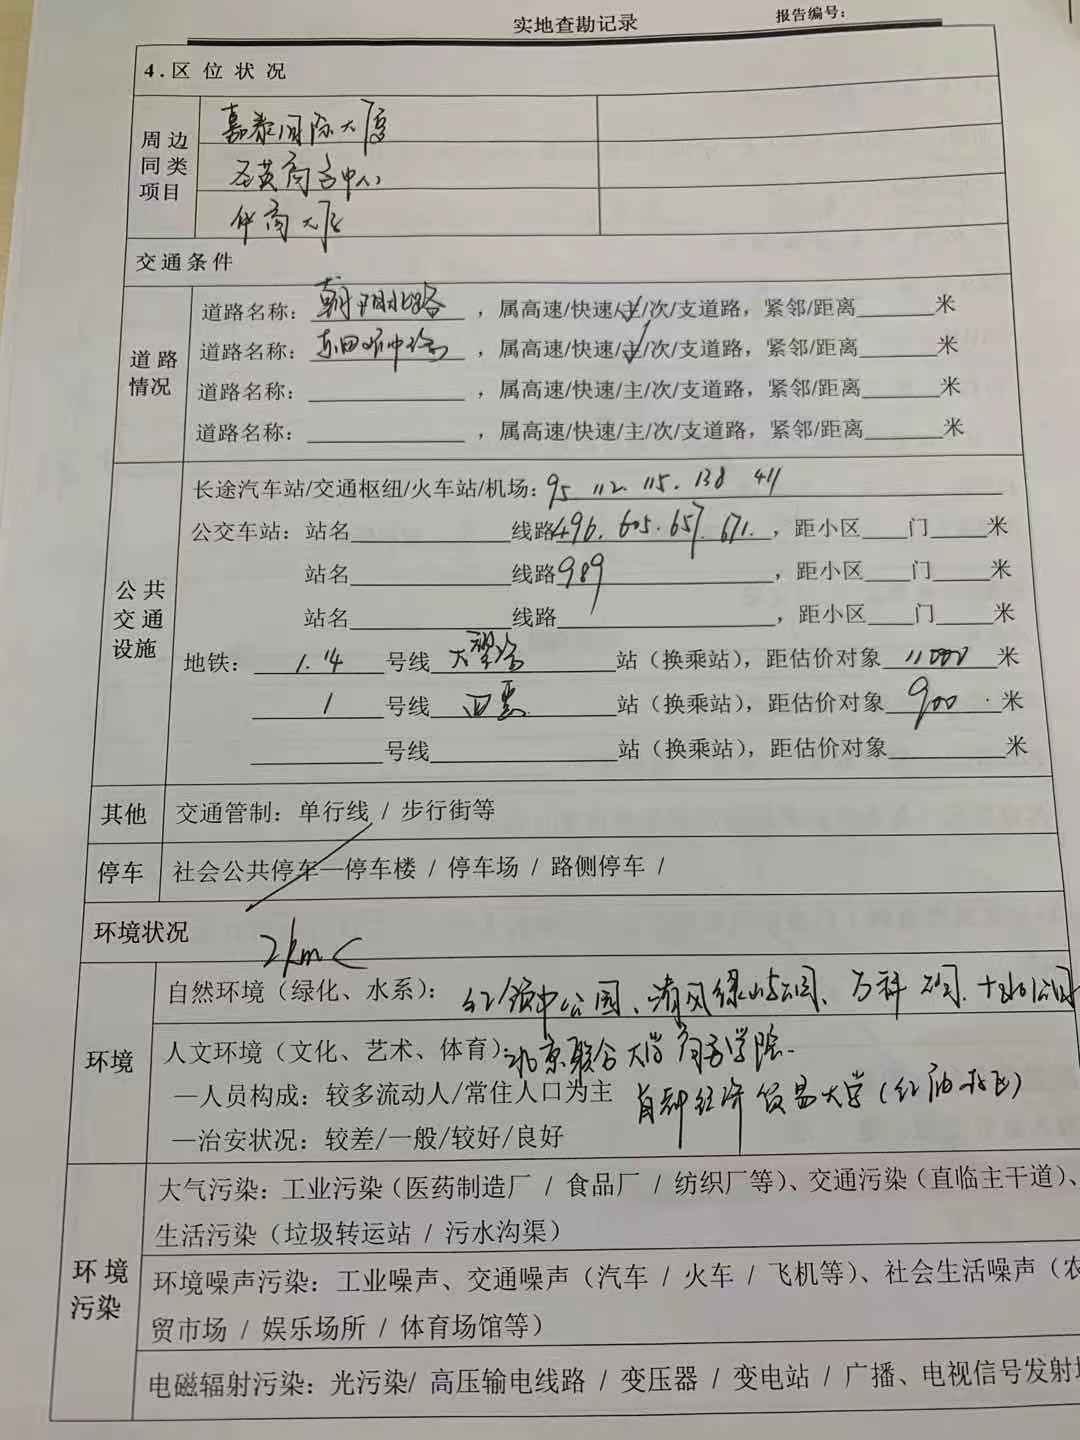 实地查勘记录
报告编号：
4.区 位 状 况
周边同类项目
嘉泰国际大厦
石英商务中心
华商大厦
交通条件
道路情况
道路名称：朝阳北路，属高速/快速/主/次/支道路，紧邻/距离______米
道路名称：______中路，属高速/快速/主/次/支道路，紧邻/距离______米
道路名称：____________，属高速/快速/主/次/支道路，紧邻/距离______米
道路名称：____________，属高速/快速/主/次/支道路，紧邻/距离______米
公共交通设施
长途汽车站/交通枢纽/火车站/机场：95 112. 115. 138 411
公交车站：站名____________线路496. 605. 657. 671.，距小区____门____米
站名____________线路989，距小区____门____米
站名____________线路____________，距小区____门____米
地铁：1. 14号线大望路站（换乘站），距估价对象______米
1号线四惠站（换乘站），距估价对象900米
______号线____________站（换乘站），距估价对象______米
其他
交通管制：单行线 / 步行街等
停车
社会公共停车—停车楼 / 停车场 / 路侧停车 /
环境状况
2km <
环境
自然环境（绿化、水系）：红领巾公园、清风绿屿公园、万科公园、
人文环境（文化、艺术、体育）：北京联合大学商务学院.
—人员构成：较多流动人/常住人口为主 首都经济贸易大学（红庙校区）
—治安状况：较差/一般/较好/良好
环境污染
大气污染：工业污染（医药制造厂 / 食品厂 / 纺织厂等）、交通污染（直临主干道）、
生活污染（垃圾转运站 / 污水沟渠）
环境噪声污染：工业噪声、交通噪声（汽车 / 火车 / 飞机等）、社会生活噪声（农
贸市场 / 娱乐场所 / 体育场馆等）
电磁辐射污染：光污染/ 高压输电线路 / 变压器 / 变电站 / 广播、电视信号发射